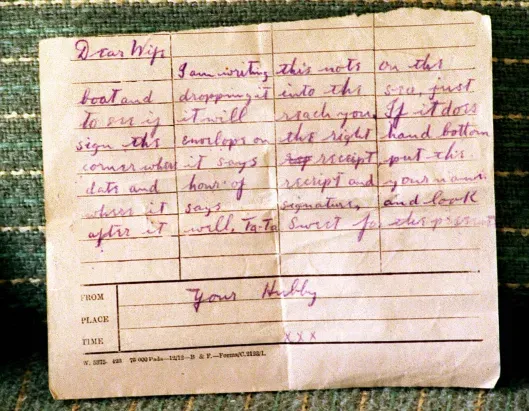 Dear Wife
I am writing this note on the
boat and dropping it into the sea just
to see if it will reach you. If it does
sign the envelope on the right hand bottom
corner where it says receipt put the
date and hour of receipt and your name
where it says signature, and look
after it well. Ta-Ta Sweet for the present
Your Hubby
FROM
PLACE
TIME
xxx